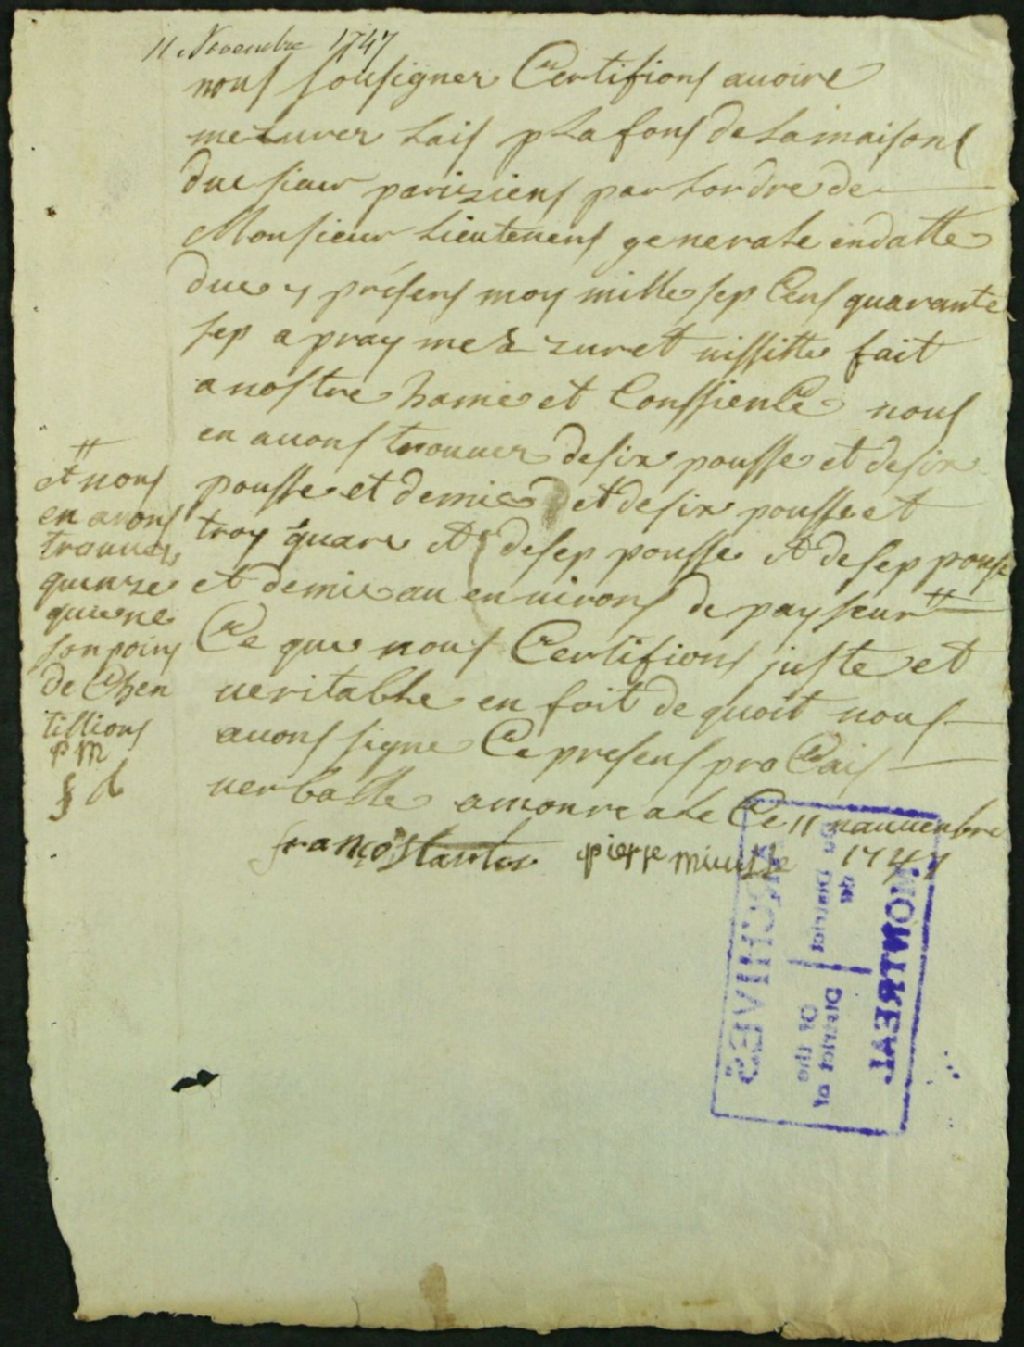 11 Novembre 1747
nous sousigner Certifions auoire
mezurer Lais pLafons de La maisons
due sieur pariziens par Lordre de
Monsieur Lieutenens generaLe en datte
due y présens moy mille sep Cens quarante
sep apray mezuret
fait
a nostre hame et Conssience nous
en auons trouuer de six pousse et de six
pousse et demie et de six pousse et
troy quare et de sep pousse et de sep pouse
et demie au enuirons de paysseur #
Ce que nous Certifions juste et
ueritabLe en foit de quoit nous
auons signe Ce presens pro Cais
uerballe a monreaLe Ce 11 nauuenbre
1747
pierre
#
et nous
en avons
trouuer
quinze
quie ne
son poins
de Chen
tillions
PM
ARCHIVES
Du District
de
Of the
District of
MONTREAL